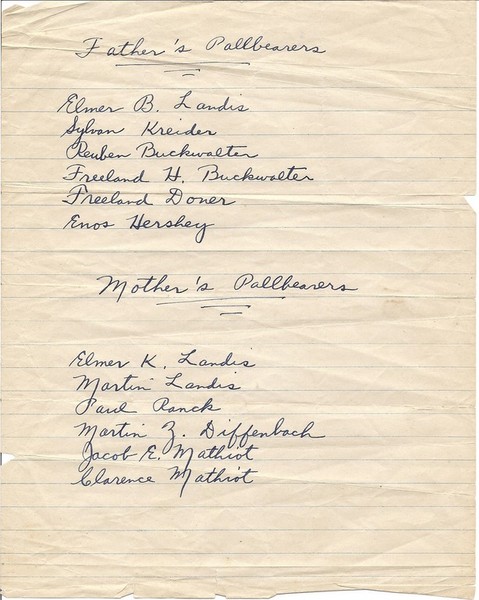 Father's Pallbearers
Elmer B. Landis
Sylvan Kreider
Reuben Buckwalter
Freeland H. Buckwalter
Freeland Doner
Enos Hershey
Mother's Pallbearers
Elmer K. Landis
Martin Landis
Paul Ranck
Martin Z. Diffenbach
Jacob E. Mathiot
Clarence Mathiot